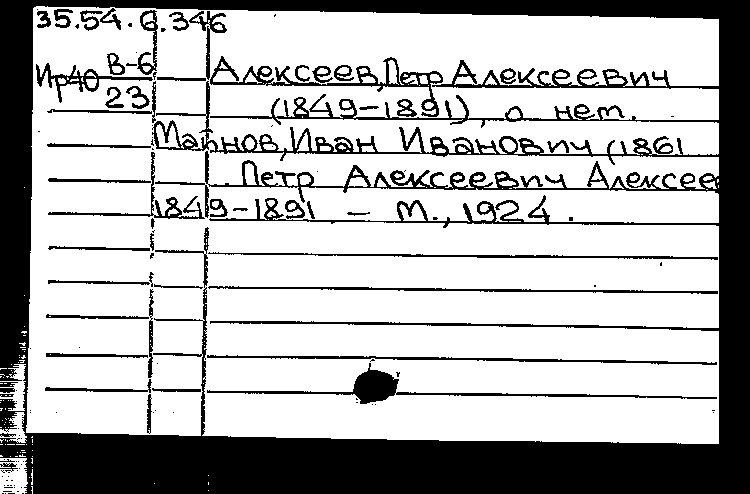 35.54.6.346
Ир40 В-6
23
Алексеев, Петр Алексеевич
(1849-1891), о нем.
Майнов, Иван Иванович (1861
Петр Алексеевич Алексеев
1849-1891 – М., 1924.